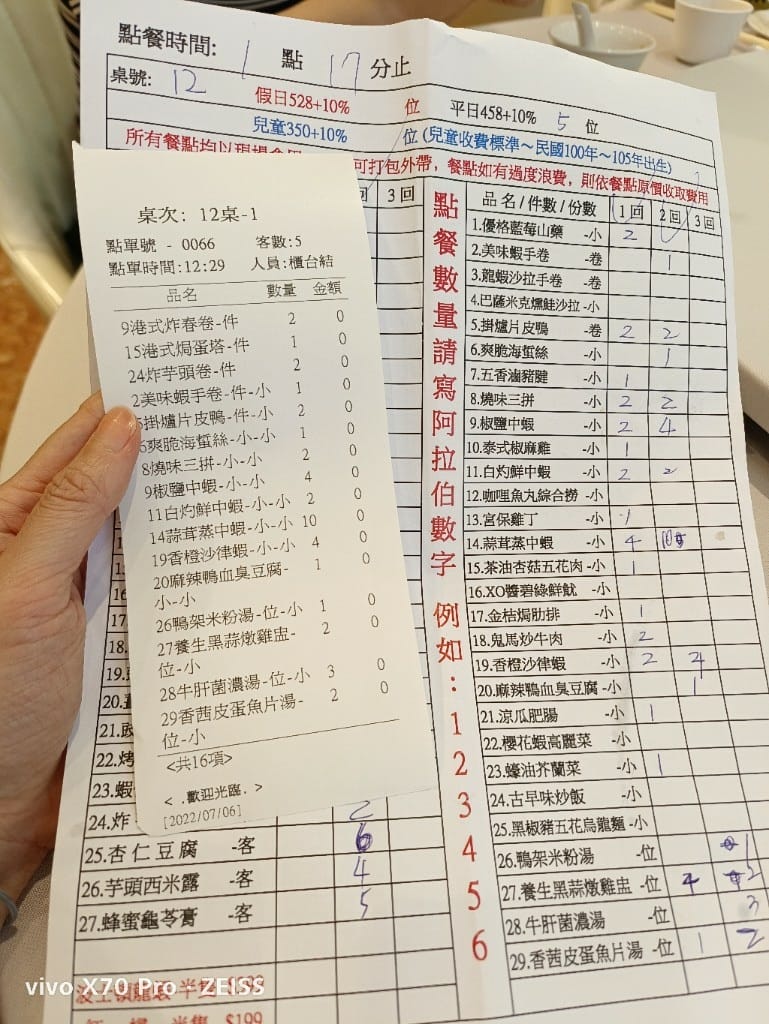 點餐時間: 1 點 17 分止
桌號: 12 假日528+10% 位 平日458+10% 5 位
兒童350+10% 位 (兒童收費標準～民國100年～105年出生)
可打包外帶，餐點如有過度浪費，則依餐點原價收取費用
3回
點餐數量請寫阿拉伯數字 例如:123456
品名/件數/份數 1回 2回 3回
1.優格藍莓山藥 -小 2
2.美味蝦手卷 -卷 1
3.龍蝦沙拉手卷 -卷
4.巴薩米克燻鮭沙拉-小
5.掛爐片皮鴨 -卷 2 2
6.爽脆海蜇絲 -小 1
7.五香滷豬腱 -小 1
8.燒味三拼 -小 2 2
9.椒鹽中蝦 -小 2 4
10.泰式椒麻雞 -小 1
11.白灼鮮中蝦 -小 2 2
12.咖哩魚丸綜合撈 -小
13.宮保雞丁 -小 1
14.蒜茸蒸中蝦 -小 4 10
15.茶油杏菇五花肉 -小 1
16.XO醬碧綠鮮魷 -小
17.金桔焗肋排 -小 1
18.鬼馬炒牛肉 -小 2
19.香橙沙律蝦 -小 2 4
20.麻辣鴨血臭豆腐 -小 1
21.涼瓜肥腸 -小 1
22.櫻花蝦高麗菜 -小
23.蠔油芥蘭菜 -小 1
24.古早味炒飯 -小
25.黑椒豬五花烏龍麵 -小
26.鴨架米粉湯 -位 1
27.養生黑蒜燉雞盅 -位 4 2
28.牛肝菌濃湯 -位 3
29.香茜皮蛋魚片湯 -位 1 2
桌次: 12桌-1
點單號 - 0066 客數:5
點單時間:12:29 人員:櫃台結
品名 數量 金額
9港式炸春卷-件 2 0
15港式焗蛋塔-件 1 0
24炸芋頭卷-件 2 0
2美味蝦手卷-件-小 1 0
掛爐片皮鴨-件-小 2 0
爽脆海蜇絲-小-小 1 0
8燒味三拼-小-小 2 0
9椒鹽中蝦-小-小 4 0
11白灼鮮中蝦-小-小 2 0
14蒜茸蒸中蝦-小-小 10 0
19香橙沙律蝦-小-小 4 0
20麻辣鴨血臭豆腐- 1 0
小-小
26鴨架米粉湯-位-小 1 0
27養生黑蒜燉雞盅- 2 0
位-小
28牛肝菌濃湯-位-小 3 0
29香茜皮蛋魚片湯- 2 0
位-小
<共16項>
< .歡迎光臨. >
[2022/07/06]
17.
18.
19.
20.
21.
22.
23.蝦
24.炸 2
25.杏仁豆腐 -客 6
26.芋頭西米露 -客 4
27.蜂蜜龜苓膏 -客 5
$199
vivo X70 Pro · ZEISS